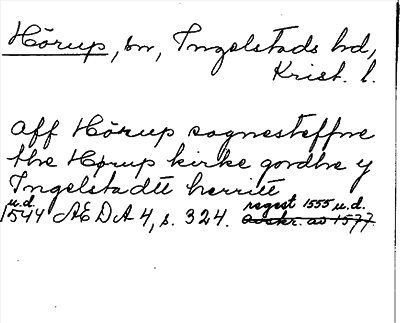 Hörup, sn, Ingelstads hd,
Krist. l.
Aff Hörup sognesteffne
the Hørup kirke gordhe y
Ingelstadtt herritt
u.d.
1544 AEDA 4, s. 324. regest 1555 u.d.
avskr. av 1577.